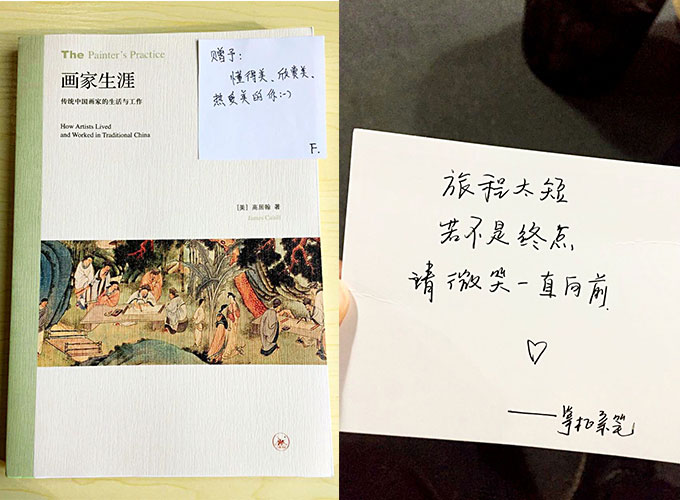 The Painter's Practice
画家生涯
传统中国画家的生活与工作
How Artists Lived
and Worked in Traditional China
赠予：
懂得美、欣赏美、
热爱美的你:-)
F.
[美] 高居翰 著
James Cahill
旅程太短
若不是终点
请微笑一直向前
♡